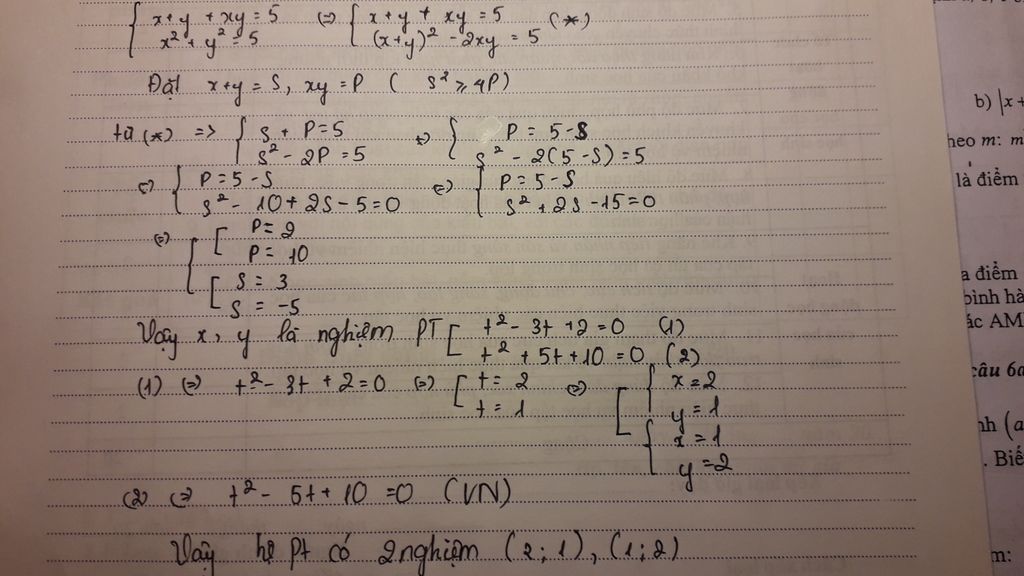 { x+y+xy=5 (=) { x+y+xy=5 (*)
{ x²+y²=5 { (x+y)²-2xy=5
Đặt x+y=S, xy=P ( S²≥4P)
từ (*) => { S+P=5 (=) { P=5-S
{ S²-2P=5 { S²-2(5-S)=5
(=) { P=5-S (=) { P=5-S
{ S²-10+2S-5=0 { S²+2S-15=0
(=) { [ P=2
[ P=10
[ S=3
[ S=-5
Vậy x, y là nghiệm PT [ t²-3t+2=0 (1)
[ t²+5t+10=0 (2)
(1) (=) t²-3t+2=0 (=) [ t=2 (=) [ { x=2
[ t=1 { y=1
{ x=1
{ y=2
(2) (=) t²-5t+10=0 (VN)
Vậy hệ pt có 2 nghiệm (2;1), (1;2)
b) |x+
heo m: m
là điểm
a điểm
bình hà
ác AM
câu 6a
nh (a
. Biế
m: